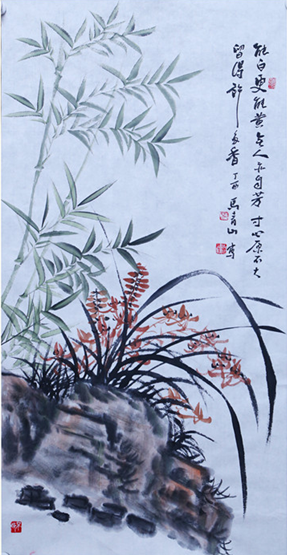 能白更能黄无人亦自芳寸心原不大
留得许多香丁酉马青山写